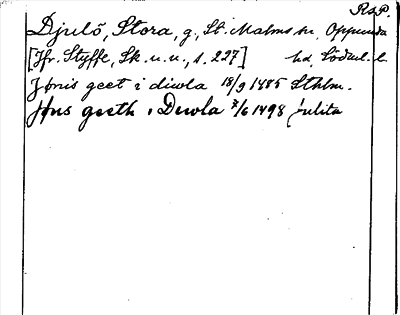 R.s.P.
Djulö, Stora, g., St. Malms sn. Oppunda
[Jfr. Styffe, Sk. u. u., s. 227] hd Södml. l.
Jönis geet i diwla 18/9 1485 Sthlm.
Jöns geeth i Dewla 7/6 1498 Julita